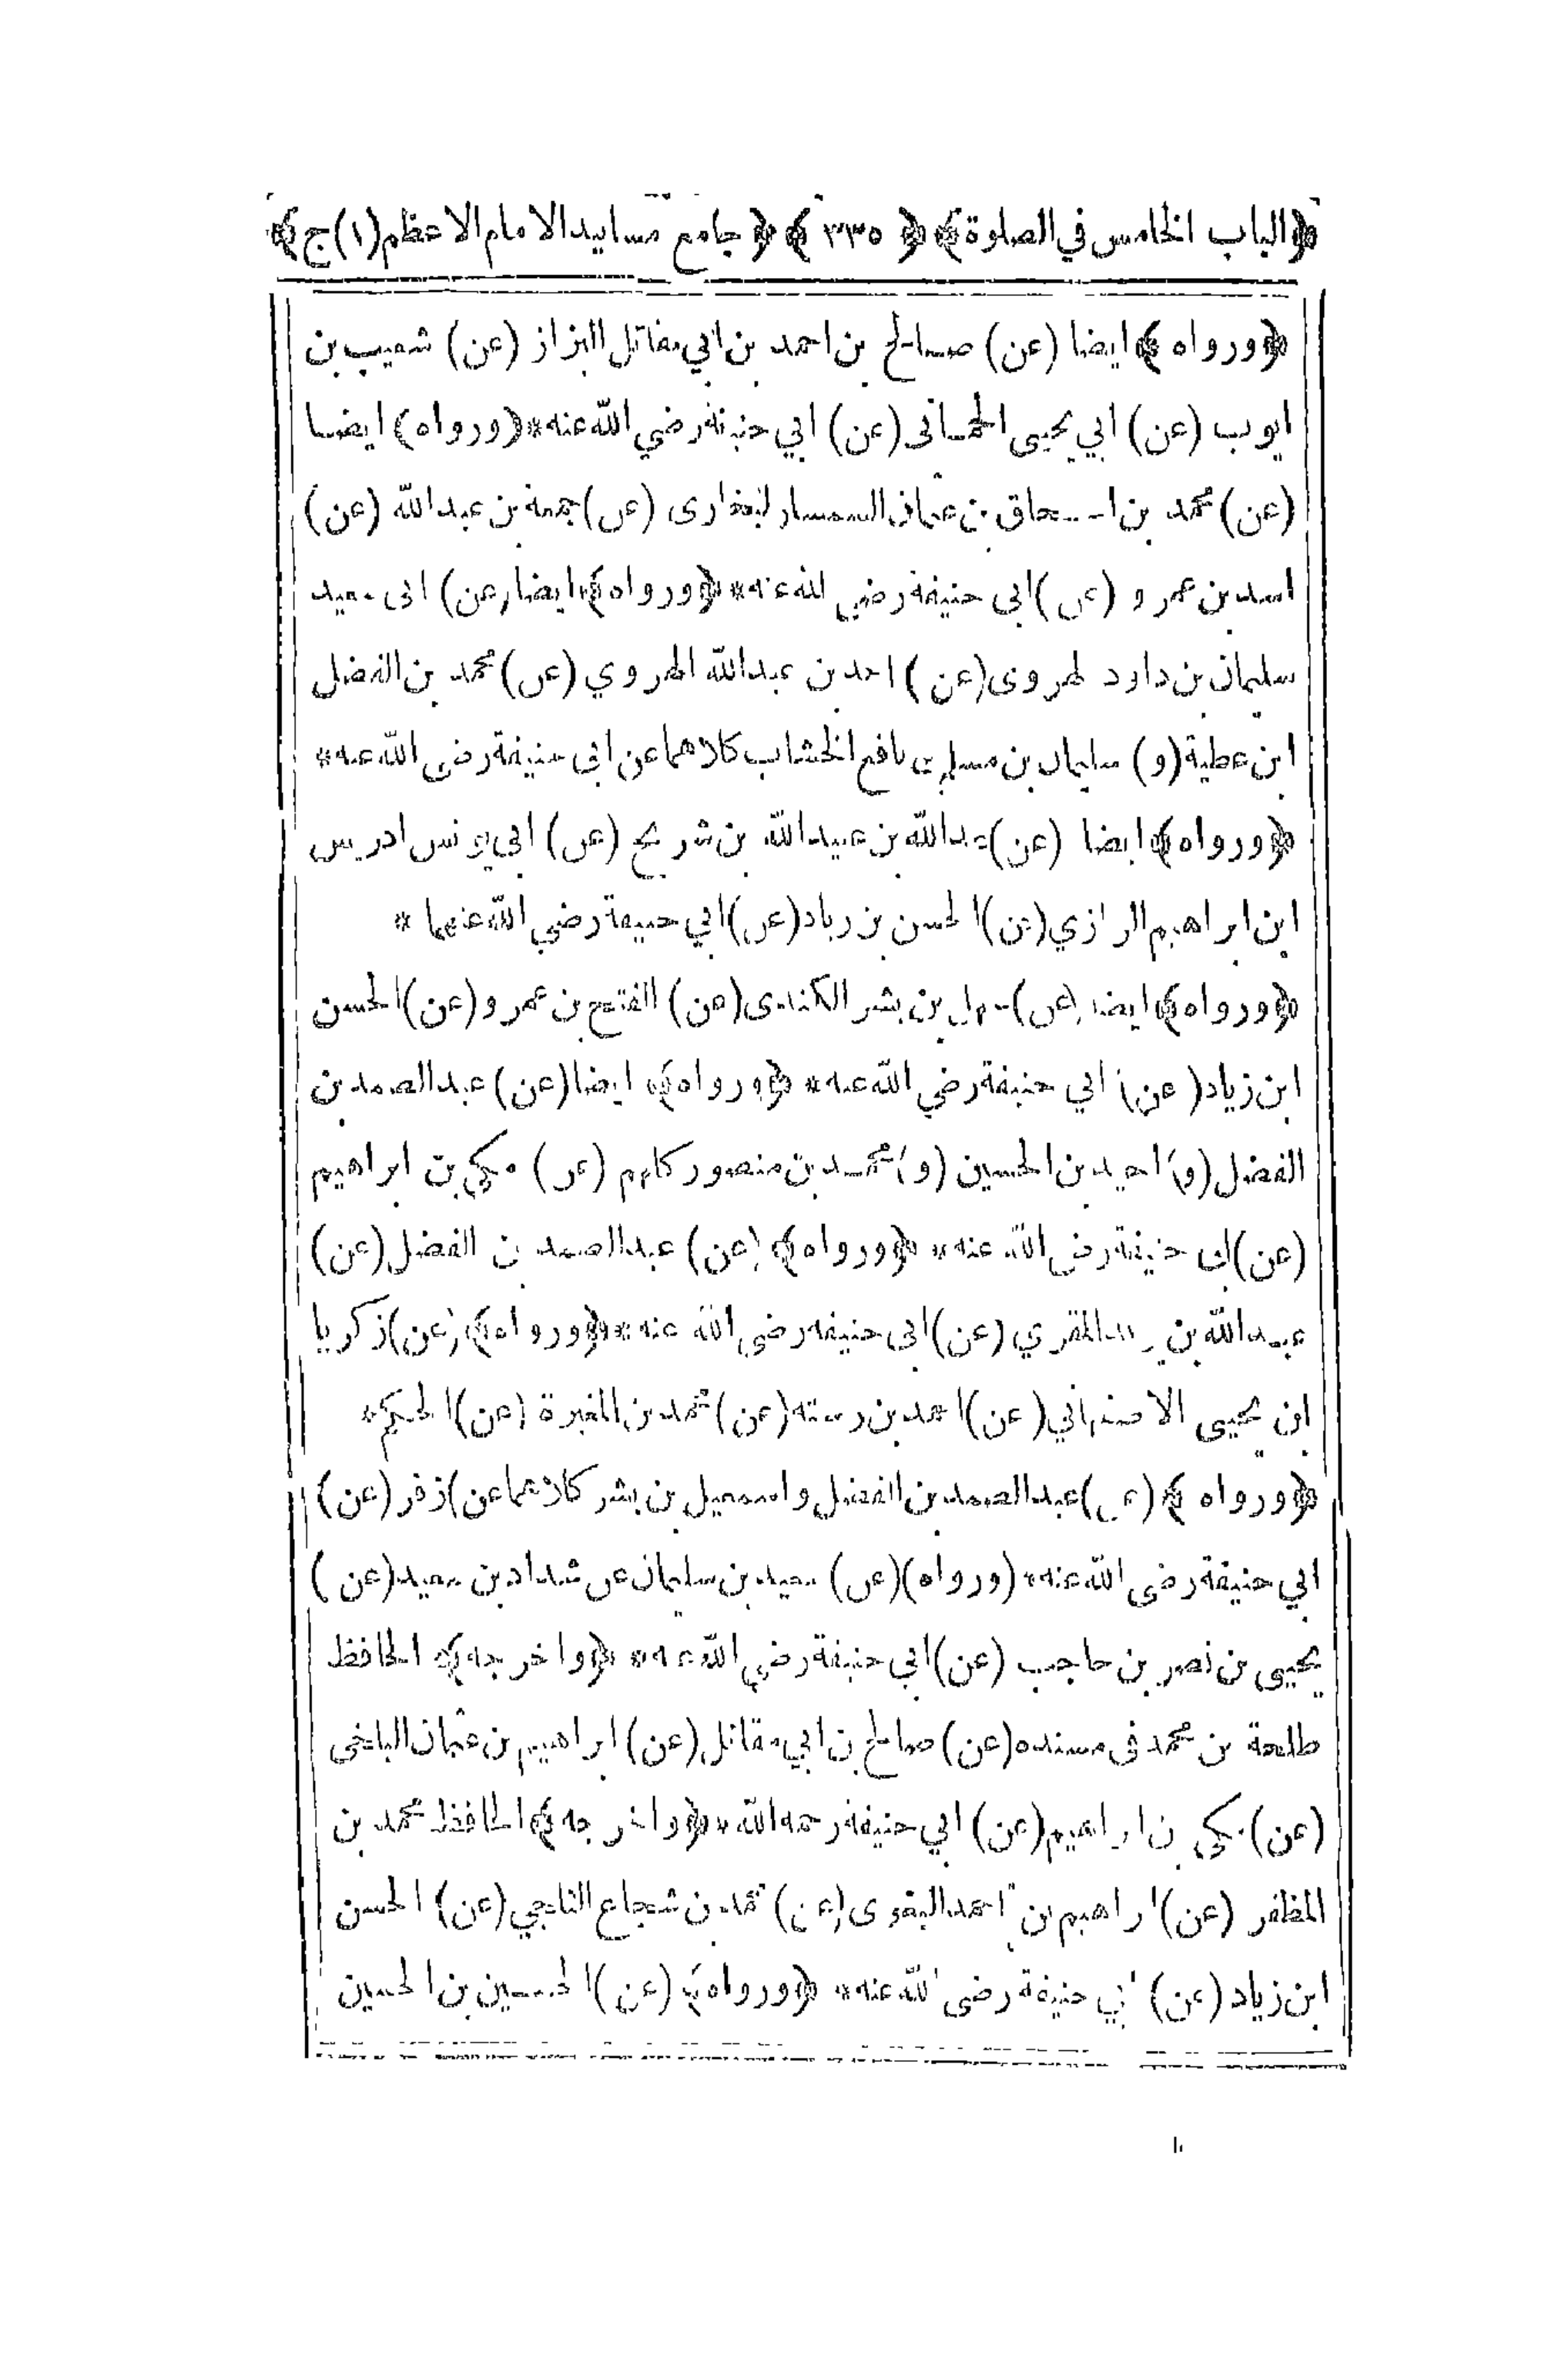 ﴿الباب الخامس في الصلوة﴾ ﴿ ٣٣٥ ﴾ ﴿ جامع مسانيد الامام الاعظم (١) ج﴾
﴿ورواه﴾ ايضا (عن) صالح بن احمد بن ابي مقاتل البزاز (عن) شعيب بن
ايوب (عن) ابي يحيى الحمانى (عن) ابي حنيفة رضي الله عنه * (ورواه) ايضا
(عن) محمد بن اسحاق بن عثمان السمسار البخارى (عن) جمعة بن عبدالله (عن)
اسد بن عمرو (عن) ابى حنيفة رضي الله عنه * ﴿ورواه﴾ ايضا (عن) ابى سعيد
سليمان بن داود الهروى (عن) احمد بن عبدالله الهروي (عن) محمد بن الفضل
ابن عطية (و) سليمان بن مسلم بن نافع الخشاب كلاهما عن ابى حنيفة رضى الله عنه *
﴿ورواه﴾ ايضا (عن) عبدالله بن عبيدالله بن شريح (عن) ابى يونس ادريس
ابن ابراهيم الرازي (عن) الحسن بن زياد (عن) ابي حنيفة رضي الله عنهما *
﴿ورواه﴾ ايضا (عن) سهل بن بشر الكندى (عن) الفتح بن عمرو (عن) الحسن
ابن زياد (عن) ابي حنيفة رضي الله عنه * ﴿ورواه﴾ ايضا (عن) عبدالصمد بن
الفضل (و) احيد بن الحسين (و) محمد بن منصور كلهم (عن) مكي بن ابراهيم
(عن) ابى حنيفة رضى الله عنه * ﴿ورواه﴾ (عن) عبدالصمد بن الفضل (عن)
عبدالله بن يزيد المقري (عن) ابى حنيفة رضى الله عنه * ﴿ورواه﴾ (عن) زكريا
ابن يحيى الاصفهاني (عن) احمد بن رسته (عن) محمد بن المغيرة (عن) الحكم *
﴿ورواه﴾ (عن) عبدالصمد بن الفضل واسمعيل بن بشر كلاهما عن) زفر (عن)
ابي حنيفة رضى الله عنه * (ورواه) (عن) سعيد بن سليمان عن شداد بن سعيد (عن)
يحيى بن نصر بن حاجب (عن) ابي حنيفة رضي الله عنه * ﴿واخرجه﴾ الحافظ
طلحة بن محمد فى مسنده (عن) صالح بن ابي مقاتل (عن) ابراهيم بن عثمان البلخى
(عن) مكي بن ابراهيم (عن) ابي حنيفة رحمه الله * ﴿واخرجه﴾ الحافظ محمد بن
المظفر (عن) ابراهيم بن احمد البغوى (عن) محمد بن شجاع الثلجي (عن) الحسن
ابن زياد (عن) ابي حنيفة رضى الله عنه * ﴿ورواه﴾ (عن) الحسين بن الحسين